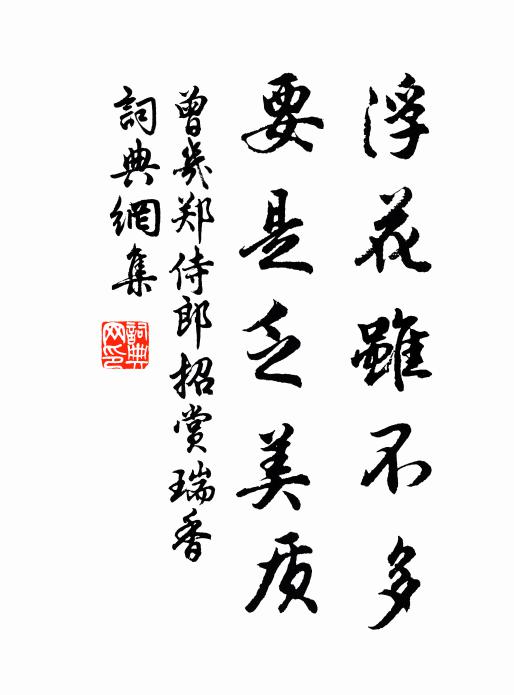 浮花雖不多
要是乏美质
曾幾郑侍郎招赏瑞香
詞典網集
詞典網印